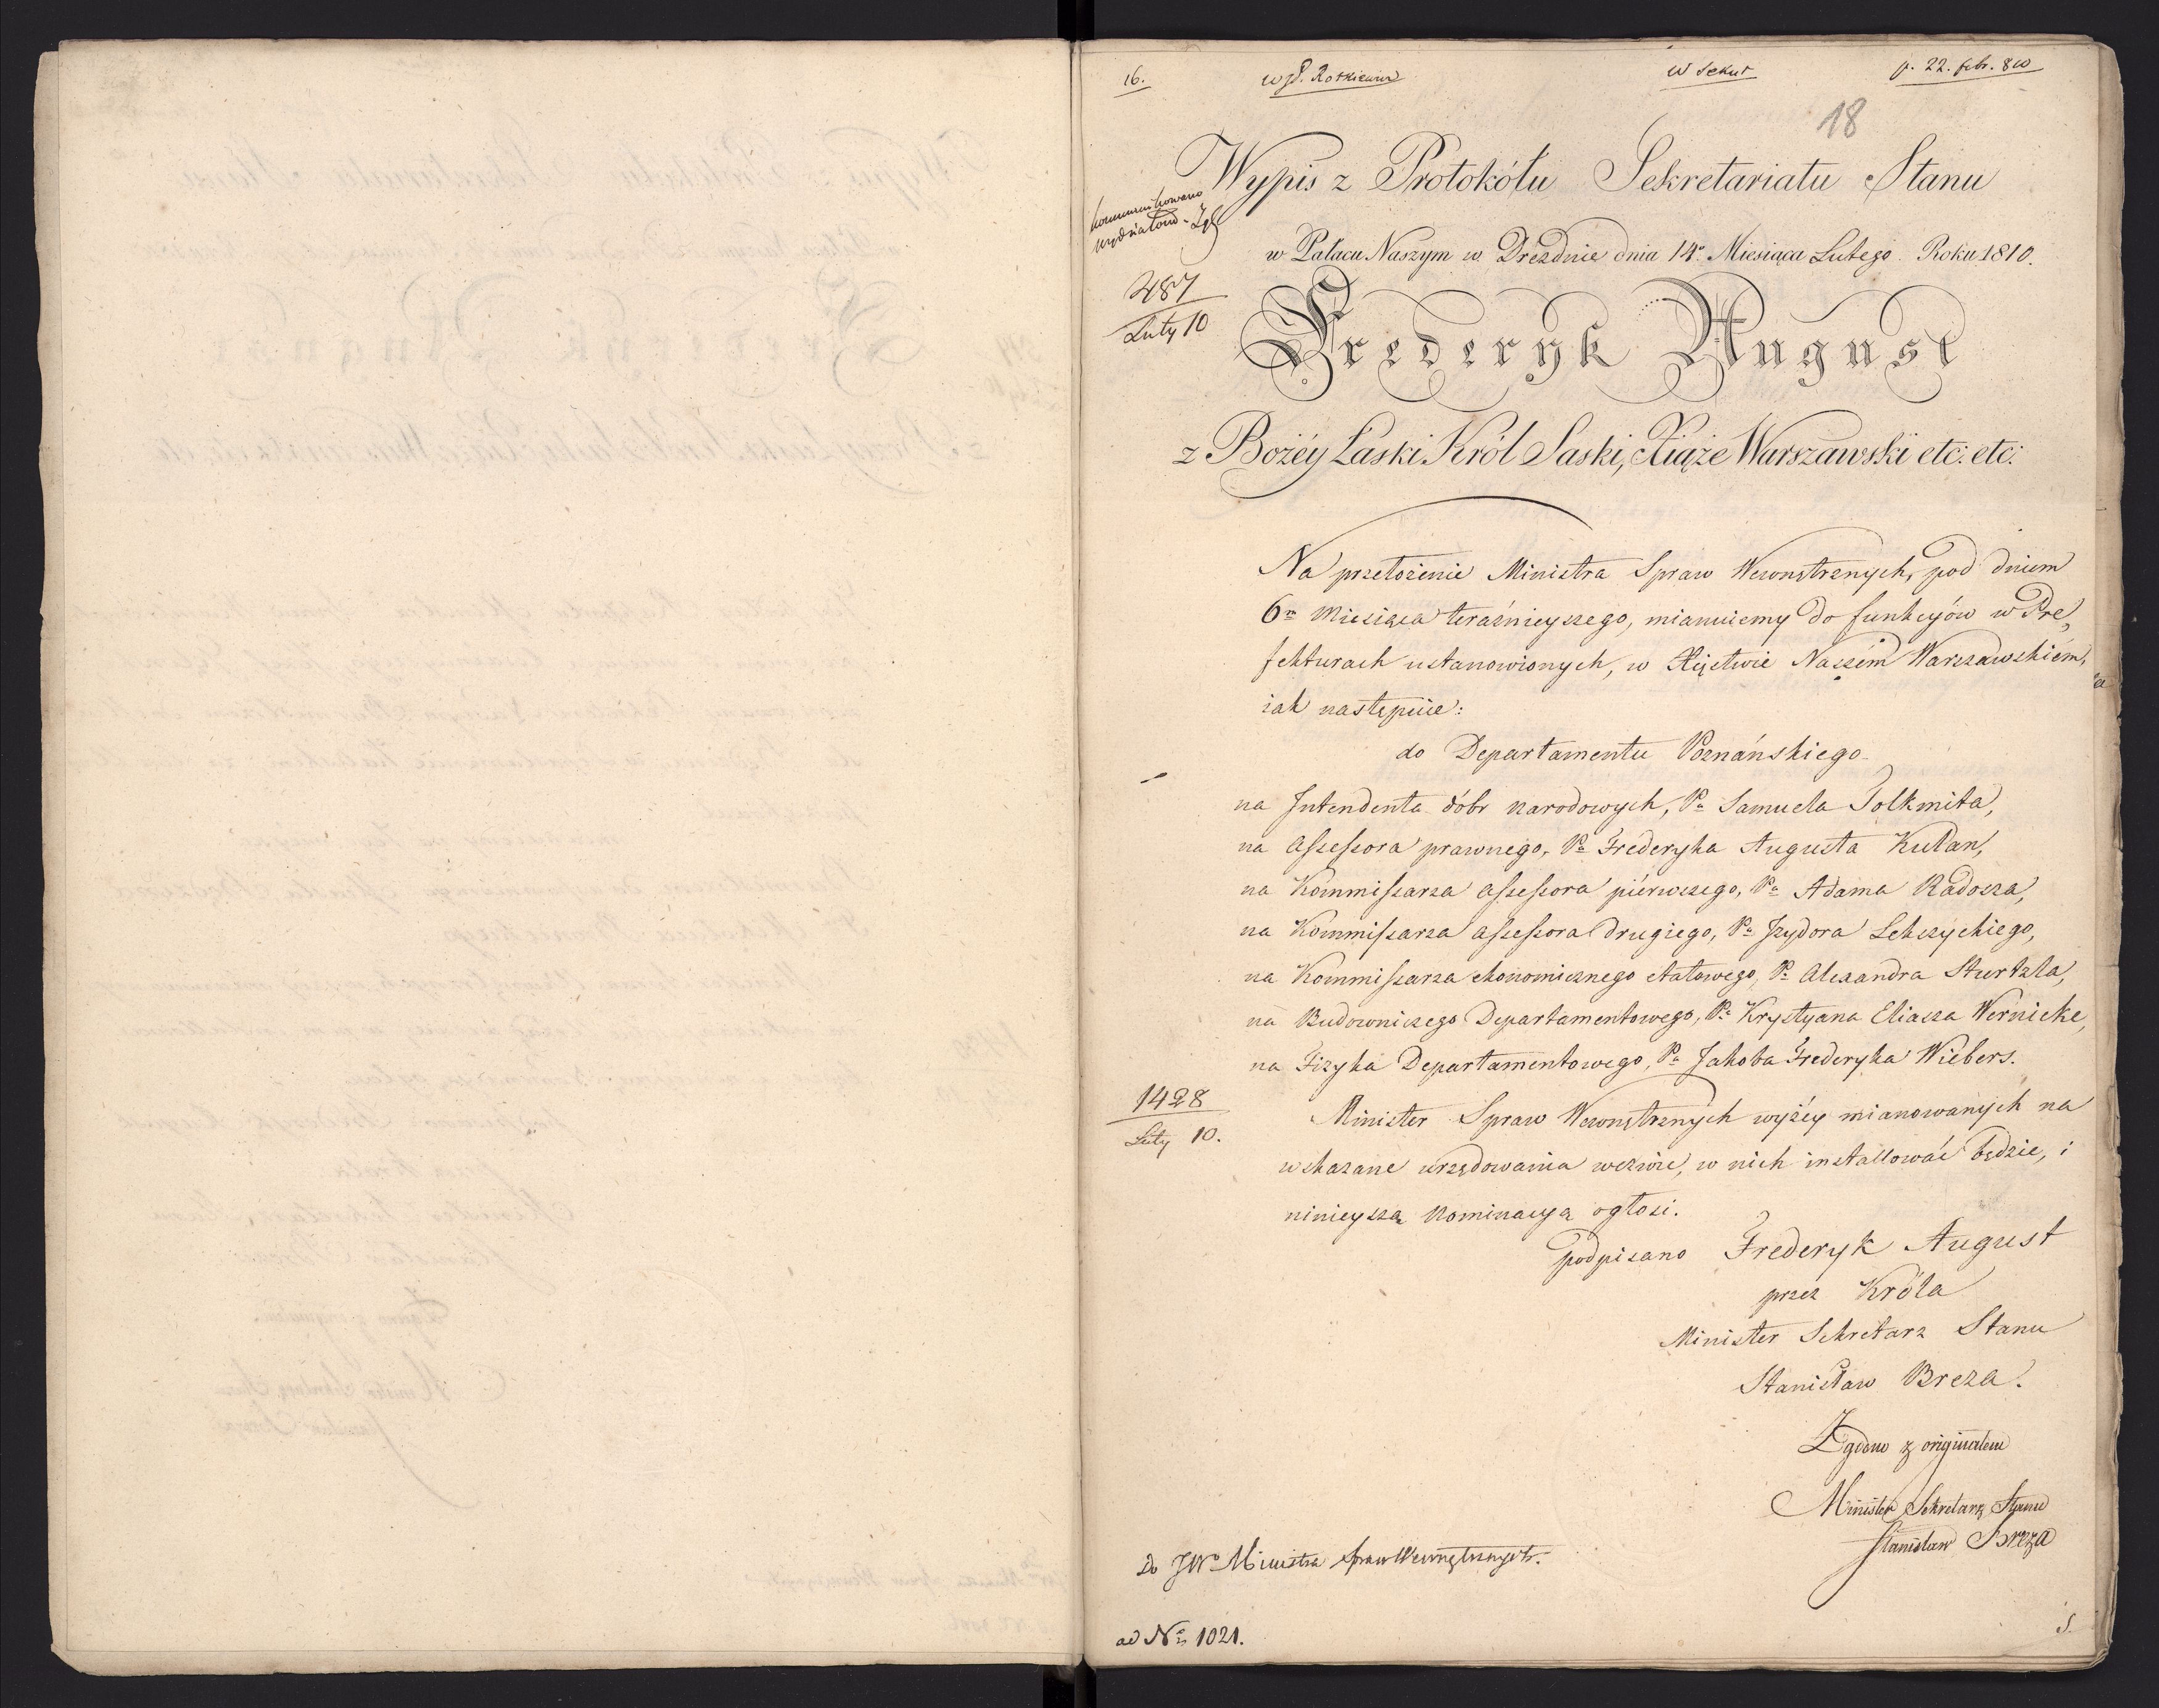 16.
w JP. Rotkiewicz
w Sekret
p. 22. febr. 810
18
Wypis z Protokółu Sekretariatu Stanu
kommunikowano
wydziałowi
w Pałacu Naszym w Dreźdnie dnia 14º Miesiąca Lutego Roku 1810.
487
Luty 10
Frederyk August
z Bożéy Łaski Król Saski, Xiąże Warszawski etc: etc:
Na przełożenie Ministra Spraw Wewnętrznych, pod dniem
6m Miesiąca teraźnieyszego, mianuiemy do funkcyów w Pre,
fekturach ustanowionych, w Xięstwie Naszém Warszawskiém,
iak następuie:
do Departamentu Poznańskiego
na Intendenta dóbr narodowych, Pa Samuela Tolkmita,
na Assessora prawnego, Pa Frederyka Augusta Kutan,
na Kommissarza assessora piérwszego, Pa Adama Radosza,
na Kommissarza assessora drugiego, Pa Izydora Lekszyckiego,
na Kommissarza ekonomicznego etatowego, Pa Alexandra Sturtzla,
na Budowniczego Departamentowego, Pa Krystyana Eliasza Wernicke,
na Fizyka Departamentowego, Pa Jakoba Frederyka Wiebers.
1428
Luty 10.
Minister Spraw Wewnętrznych wyżéy mianowanych na
wskazane urzędowania wezwie, w nich installować będzie, i
ninieyszą nominacyą ogłosi.
podpisano Frederyk August
przez Króla
Minister Sekretarz Stanu
Stanisław Breza.
Zgodno z originałem
Minister Sekretarz Stanu
Stanisław Breza
Do JWo Ministra Spraw Wewnętrznych.
ad No 1021.
S.